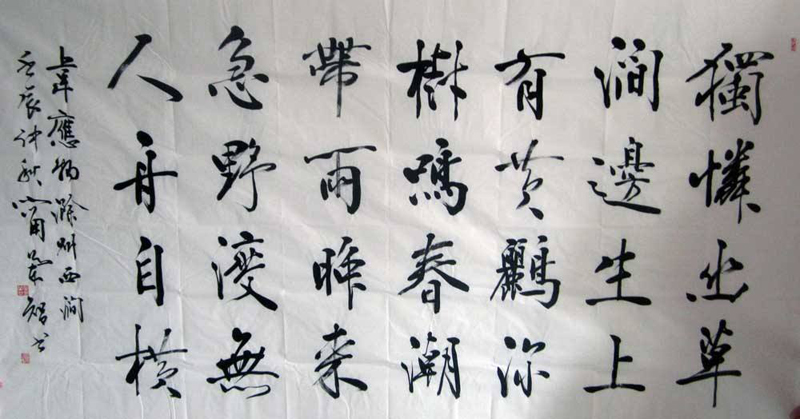 獨憐幽草
澗邊生上
有黄鸝深
樹鳴春潮
帶雨晚来
急野渡無
人舟自横
上韋應物滁州西澗
壬辰仲秋智书